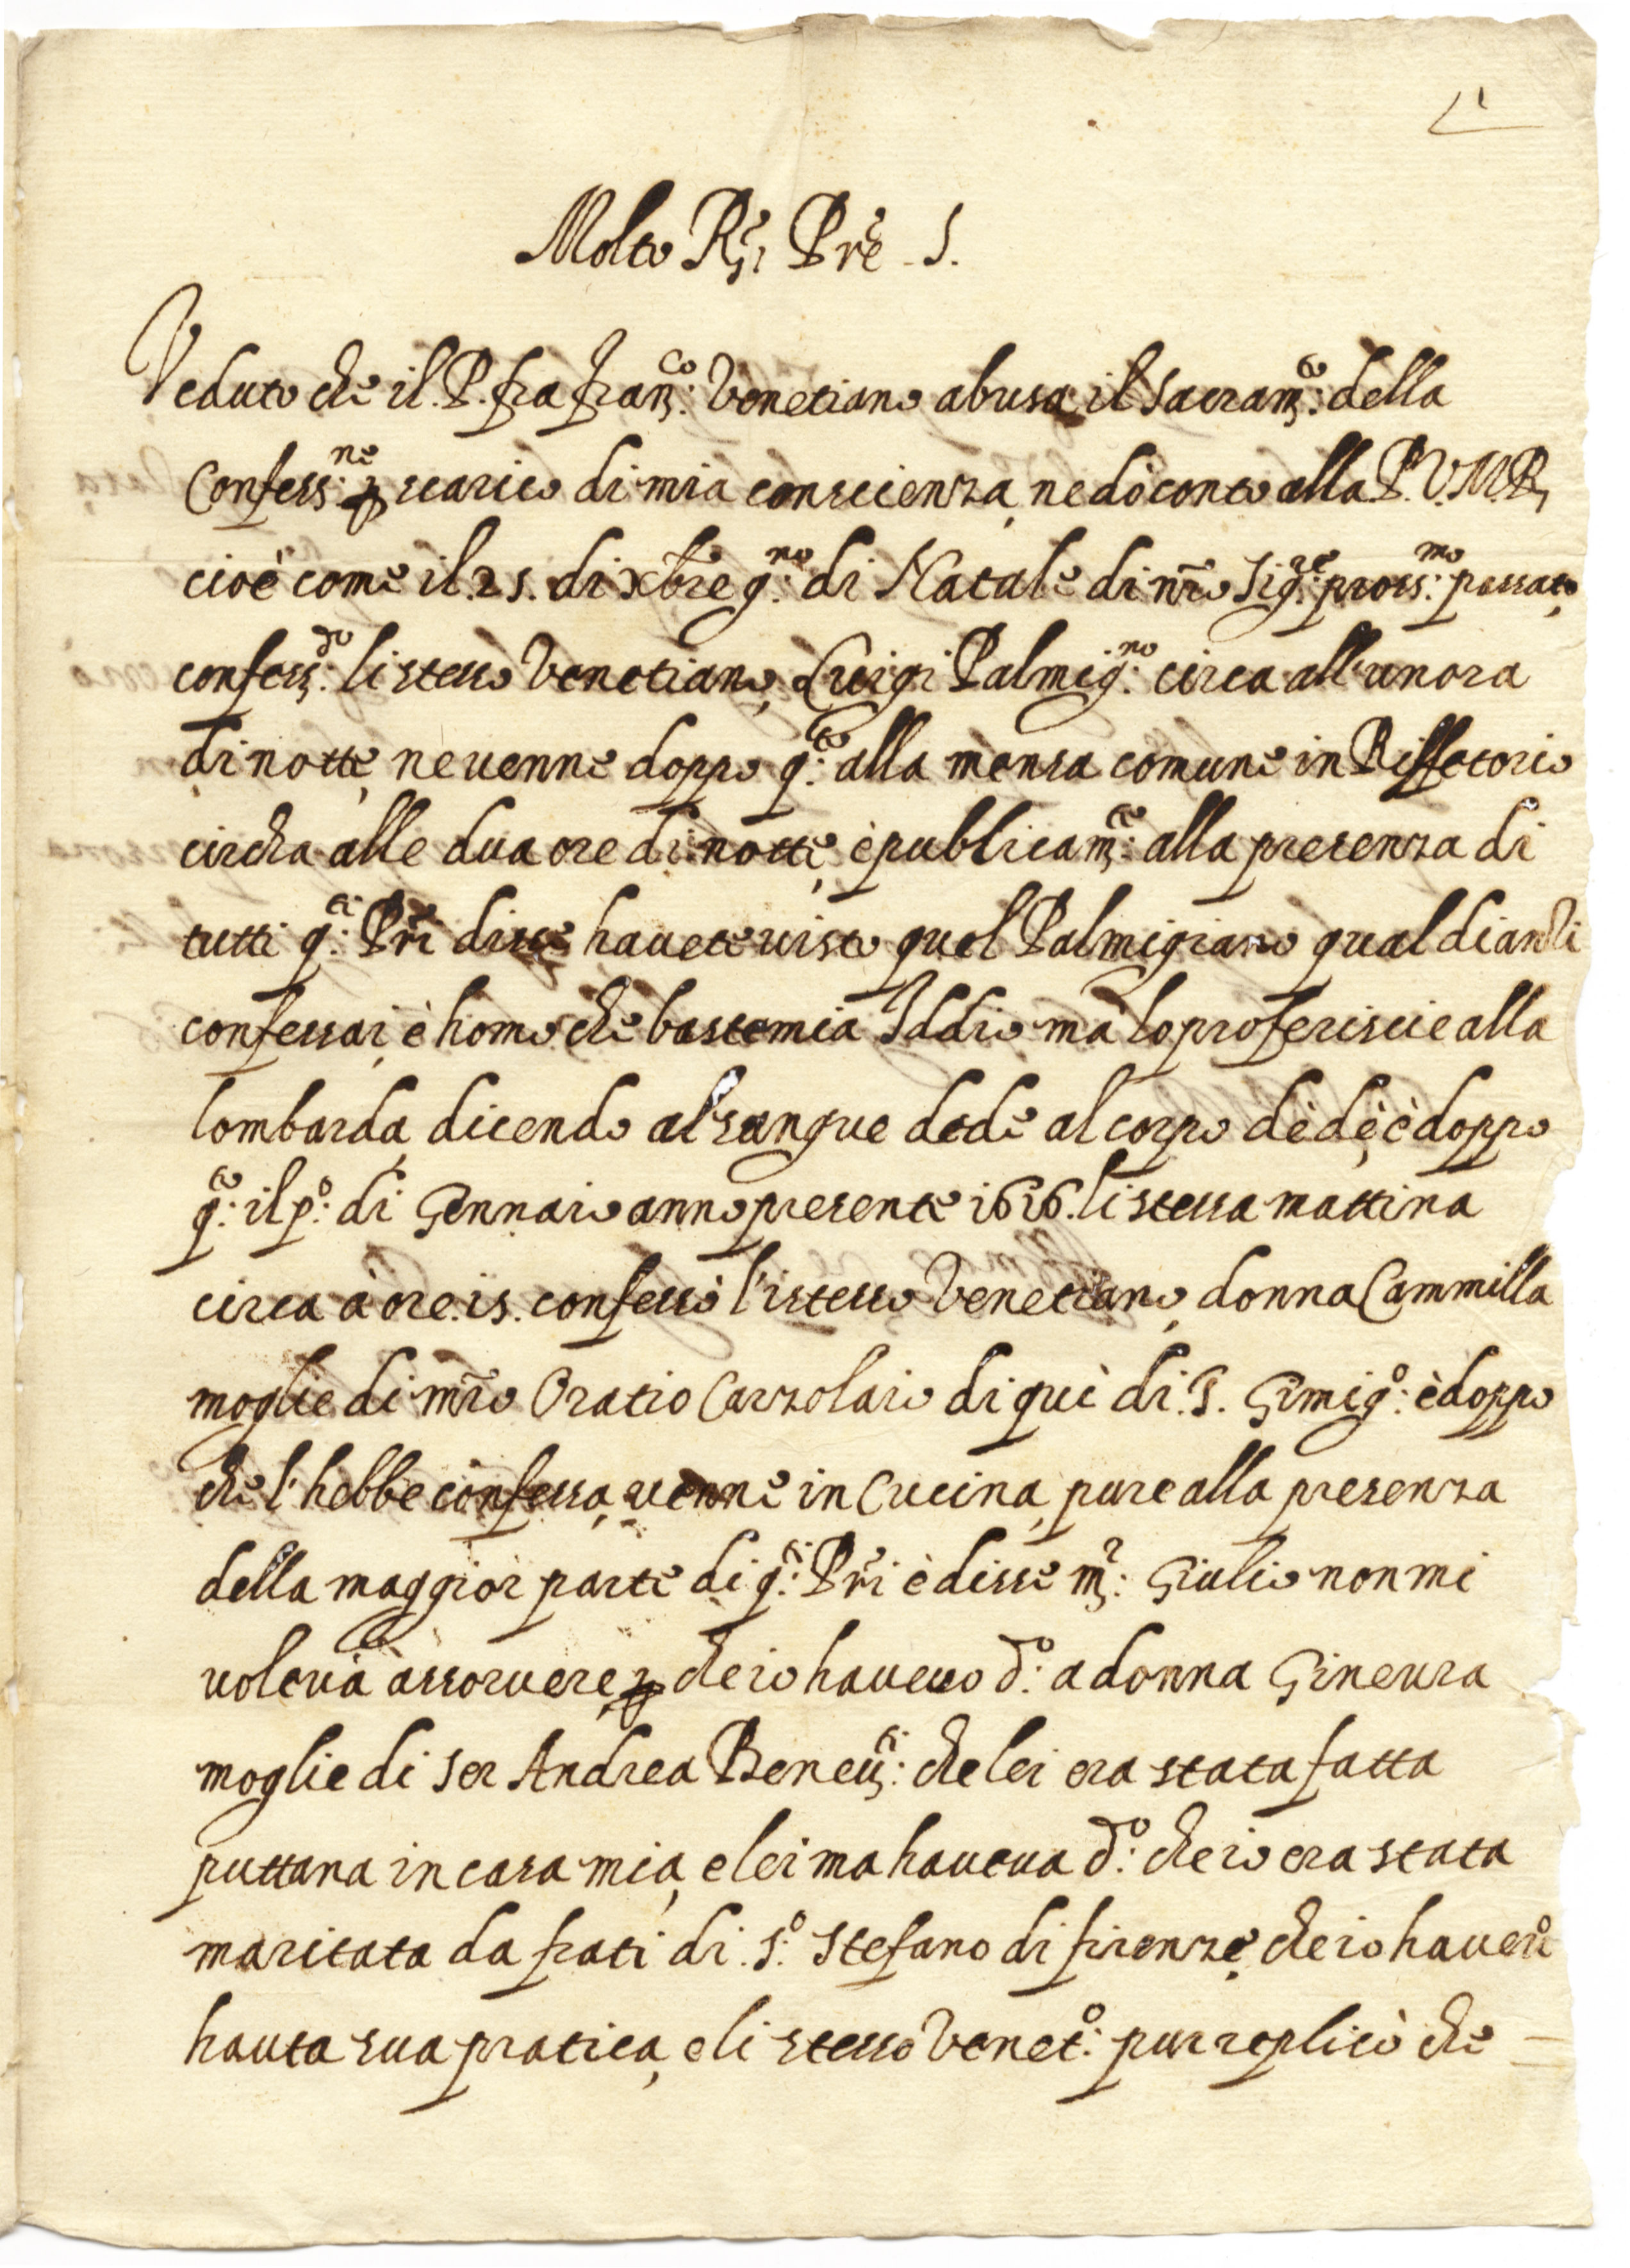 1
Molto R. Pre S.
Veduto che il P. fra Fran.co Venetiano abusa il Sacram.to della
Confess.ne p scarico di mia conscienza, ne dò conto alla P.V.M.R.
cioè come il 25. di xbre g.no di Natale di nro Sig.re pross.mo passato,
confess.do listesso Venetiano, Luigi Palmig.no circa all'unora
di notte, ne venne doppo q.to alla mensa comune in Reffetorio
circha alle dua ore di notte, è publicam.te alla presenza di
tutti q.ti Pri disse havete visto quel Palmigiano qual dianzi
confessai, è homo che bastemia Iddio ma lo proferiscie alla
lombarda, dicendo al sangue dede al corpo dè dè, è doppo
q.to il p.o di Gennaio anno presente 1616. listessa mattina
circa à ore. 15. confessò l'istesso Venetiano, donna Cammilla
moglie di mro Oratio Carzolaio di quì di S. Gimig.o: è doppo
che l'hebbe confessa, venne in Cucina, pure alla presenza
della maggior parte di q.ti Pri è disse m.r Giulio non mi
voleva assorvere, p che io havevo d.o a donna Ginevra
moglie di Ser Andrea Beneu.ti che lei era stata fatta
puttana in casa mia, e lei ma haveva d.o che io era stata
maritata da frati di S.o Stefano di firenze, che io havevo
hauta sua pratica, e listesso Venet.o pur replicò che